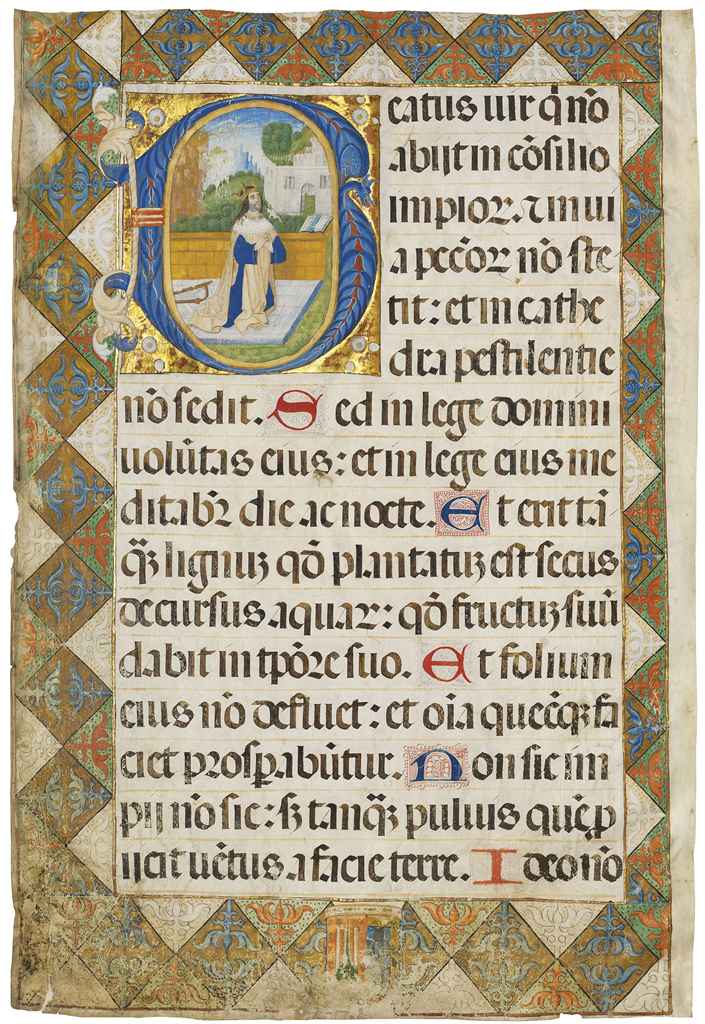 Beatus uir q̄ nō
abijt in cōsilio
impioꝝ. ⁊ in ui
a peccōꝝ nō ste
tit: et in cathe
dra pestilentie
nō sedit. Sed in lege domini
uolūtas eius: et in lege eius me
ditabr̄ die ac nocte. Et erit tā
q̄ꝫ lignuꝫ qd̄ plantatuꝫ est secus
decursus aquaꝝ: qd̄ fructuꝫ suū
dabit in tp̄ore suo. Et folium
eius nō defluet: et oīa quecq̄ꝫ fa
ciet prosꝑabūtur. Non sic im
pij nō sic: sꝫ tanq̄ꝫ puluis quē ꝓ
ijcit uētus a facie terre. Ideo nō